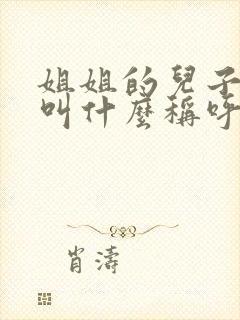 姐姐的兒子
叫什麼稱呼
肖濤